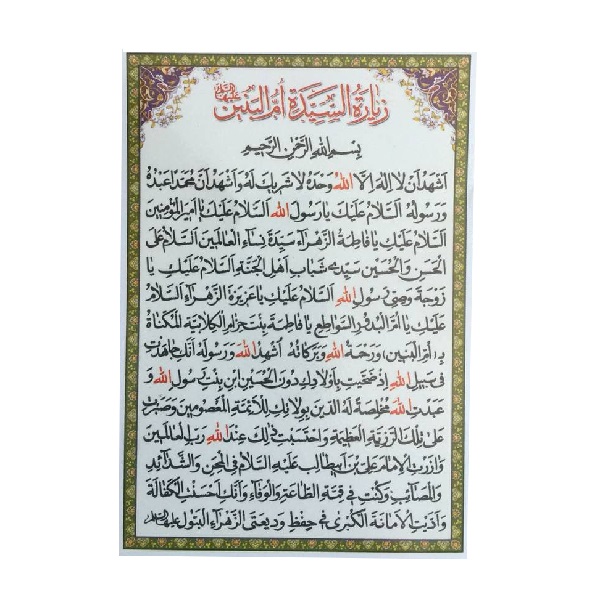 زيارة السيدة أم البنين عليها السلام
بسم الله الرحمن الرحيم
أشهد أن لا إله إلا الله وحده لا شريك له وأشهد أن محمدا عبده
ورسوله السلام عليك يا رسول الله السلام عليك يا أمير المؤمنين
السلام عليك يا فاطمة الزهراء سيدة نساء العالمين السلام على
الحسن والحسين سيدي شباب أهل الجنة السلام عليك يا
زوجة وصي رسول الله السلام عليك يا عزيزة الزهراء السلام
عليك يا أم البدور السواطع يا فاطمة بنت حزام الكلابية المكناة
بـ(أم البنين) ورحمة الله وبركاته أشهد الله ورسوله أنك جاهدت
في سبيل الله إذ ضحيت بأولادك دون الحسين ابن بنت رسول الله و
عبدت الله مخلصة له الدين بولائك للأئمة المعصومين وصبرت
على تلك الرزية العظيمة واحتسبت ذلك عند الله رب العالمين
وآزرت الإمام علي بن أبي طالب عليه السلام في المحن والشدائد
والمصائب وكنت في قمة الطاعة والوفاء وأنك أحسنت الكفالة
وأديت الأمانة الكبرى في حفظ وديعتي الزهراء البتول عليها السلام